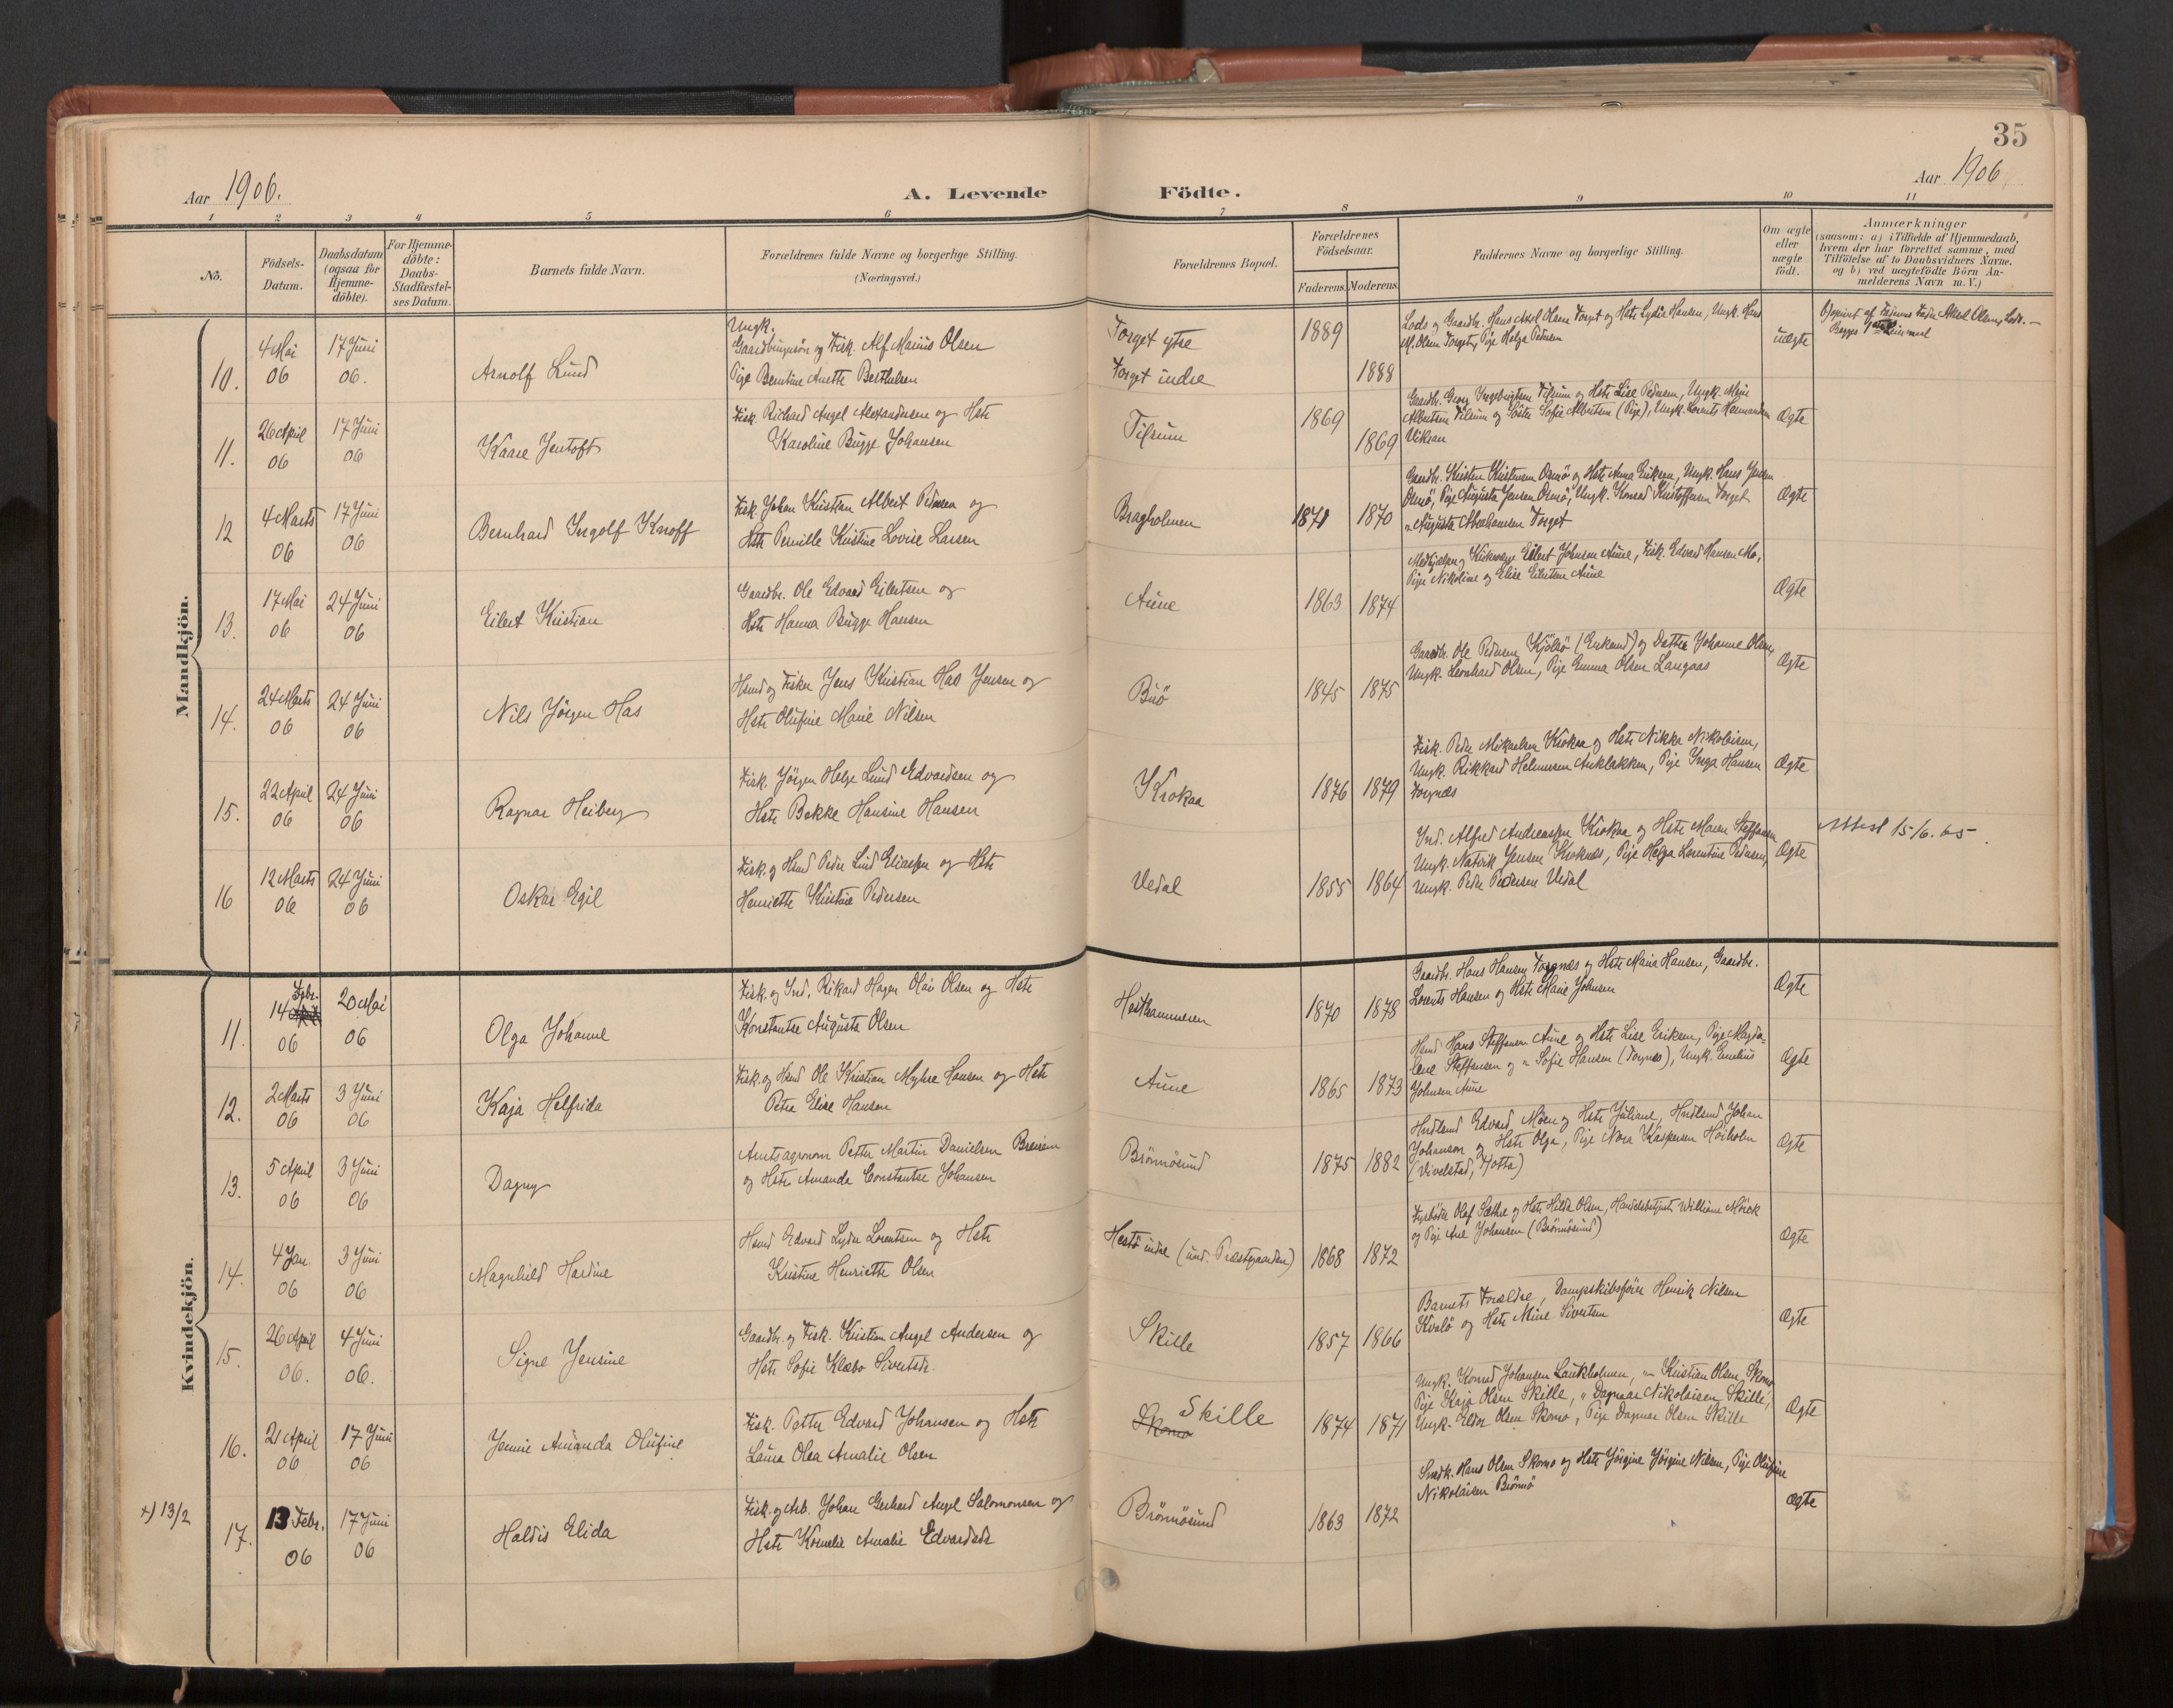 35
Aar 1906.
A. Levende Födte.
Aar 1906
1 2 3 4 5 6 7 8 9 10 11
No.
Födsels-
Datum.
Daabsdatum
(ogsaa for
Hjemme-
döbte).
For Hjemme-
döbte:
Daabs-
Stadfæstel-
ses Datum.
Barnets fulde Navn.
Forældrenes fulde Navne og borgerlige Stilling.
(Næringsvei.)
Forældrenes Bopæl.
Forældrenes
Födselsaar.
Faderens. Moderens.
Faddernes Navne og borgerlige Stilling.
Om ægte
eller
uægte
födt.
Anmærkninger
(saasom: a) i Tilfælde af Hjemmedaab,
hvem der har forrettet samme, med
Tilföielse af to Daabsvidners Navne.
og b) ved uægtefödte Börn An-
melderens Navn m. V.)
Mandkjön.
10.
4 Mai
06
17 Juni
06.
Arnolf Lund
Ungk.
Gaardbrugersön og Fisk. Alf Marius Olsen
Pige Berntine Anette Berthelsen
Torget ytre
Torget indre
1889
1888
Lods og Gaardbr. Hans Axel Olsen Torget og Hstr Lydie Hansen, Ungk. Hans
M. Olsen Torget, Pige Helga Pedersen
uægte
Opgivet af Faderens Fader Aksel Olsen, Lods. —
Begges 1ste Leiermaal
11.
26 April
06
17 Juni
06
Kaare Jentoft
Fisk. Richard Angel Alexandersen og Hstr
Karoline Bugge Johansen
Tilrum
1869
1869
Gaardbr. Georg Ingebrigtsen Tilrum og Hstr Lise Pedersen, Ungk. Meier
Albertsen Tilrum og Söster Sofie Albertsen (Pige), Ungk. Lorents Hermansen
Vikran
Ægte
12
4 Marts
06
17 Juni
06
Bernhard Ingolf Knoff
Fisk. Johan Kristian Albert Pedersen og
Hstr Pernille Kristine Lovise Larsen
Bragholmen
1871
1870
Gaardbr. Kristen Kristensen Osmö og Hstr Anna Eriksen, Ungk. Hans Jensen
Osmö, Pige Augusta Jensen Osmö, Ungk. Konrad Kristoffersen Torget
" Augusta Abrahamsen Torget
Ægte
13.
17 Mai
06
24 Juni
06
Eilert Kristian
Gaardbr. Ole Edvard Eilertsen og
Hstr Hanna Bugge Hansen
Aune
1863
1874
Medhjælper og Kirkeværge Eilert Johnsen Aune, Fisk. Edvard Hansen Mo,
Pige Nikoline og Elise Eilertsen Aune
Ægte
14.
24 Marts
06
24 Juni
06
Nils Jörgen Has
Hsmd og Fisker Jens Kristian Has Jensen og
Hstr Olufine Marie Nilsen
Buö
1845
1875
Gaardbr. Ole Pedersen Kjölsö (Enkemd) og Datter Johanne Olsen,
Ungk. Leonhard Olsen, Pige Emma Olsen Langaas
Ægte
15.
22 April
06
24 Juni
06
Ragnar Heiberg
Fisk. Jörgen Helge Lund Edvardsen og
Hstr Bekke Hansine Hansen
Krokaa
1876
1879
Fisk. Peder Mikaelsen Krokaa og Hstr Nikka Nikolaisen,
Ungk. Rikkard Helmersen Auklakken, Pige Inga Hansen
Torgnæs
Ægte
16
12 Marts
06
24 Juni
06
Oskar Egil
Fisk. og Hsmd Peder Lind Eliassen og Hstr
Henriette Kristine Pedersen
Uedal
1855
1864
Ind. Alfred Andreassen Krokaa og Hstr Maren Steffensen
Ungk. Natvik Jensen Kroknæs, Pige Helga Lorentine Pedersen,
Ungk. Peder Pedersen Uedal
Ægte
Attest 15/6. 65.
Kvindekjön.
11.
Febr.
14
06
20 Mai
06
Olga Johanne
Fisk. og Ind. Rikard Hagen Olai Olsen og Hstr
Konstantse Augusta Olsen
Hesthammeren
1870
1878
Gaardbr. Hans Hansen Torgnæs og Hstr Maria Hansen, Gaardbr.
Lorents Hansen og Hstr Marie Johnsen
Ægte
12.
2 Marts
06
3 Juni
06
Kaja Helfrida
Fisk. og Hsmd Ole Kristian Myhre Hansen og Hstr
Petra Elise Hansen
Aune
1865
1873
Hsmd Hans Steffensen Aune og Hstr Lise Eriksen, Pige Magda-
lene Steffensen og " Sofie Hansen (Torgnæs), Ungk. Emelius
Johnsen Aune
Ægte
13.
5 April
06
3 Juni
06
Dagny
Amtsagronom Petter Martin Danielsen Breium
og Hstr Amanda Constantse Johansen
Brönnösund
1875
1882
Hndlsmd Edvard Möen og Hstr Juliane, Hndlsmd Johan
Johansen og Hstr Olga, Pige Nora Kaspersen Höiholm
(Vivelstad, Tjötta)
Ægte
14.
4 Jan.
06
3 Juni
06
Magnhild Hardine
Hsmd Edvard Lyder Lorentsen og Hstr
Kristine Henriette Olsen
Hestö indre (und. Præstgaarden)
1868
1872
Fyrböder Olaf Sæthre og Hstr Hilda Olsen, Handelsbetjent William Mörck
og Pige Ane Johansen (Brönnösund)
Ægte
15.
26 April
06.
4 Juni
06.
Signe Jensine
Gaardbr. og Fisk. Kristian Angel Andersen og
Hstr Sofie Klæbo Sivertsdr.
Skille
1857
1866
Barnets Forældre, Dampskibsförer Henrik Nilsen
Kvalö og Hstr Mine Sivertsen
Ægte
16.
21 April
06
17 Juni
06
Jennie Amanda Olufine
Fisk. Petter Edvard Johansen og Hstr
Laura Olea Amalie Olsen
Skille
Skomo
1874
1871
Ungk. Konrad Johansen Laukholmen, " Kristian Olsen Skomo
Pige Kaja Olsen Skille, " Dagmar Nikolaisen Skille,
Ungk. Eldor Olsen Skomo, Pige Dagmar Olsen Skille
Ægte
+) 13/2
17.
13 Febr.
06
17 Juni
06
Haldis Elida
Fisk. og Arb. Johan Gerhard Angel Salomonsen og
Hstr Kornelie Amalie Edvardsdr
Brönnösund
1863
1872
Snedk. Hans Olsen Skomo og Hstr Jörgine Jörgine Nilsen, Pige Olufine
Nikolaisen Brönnö
Ægte